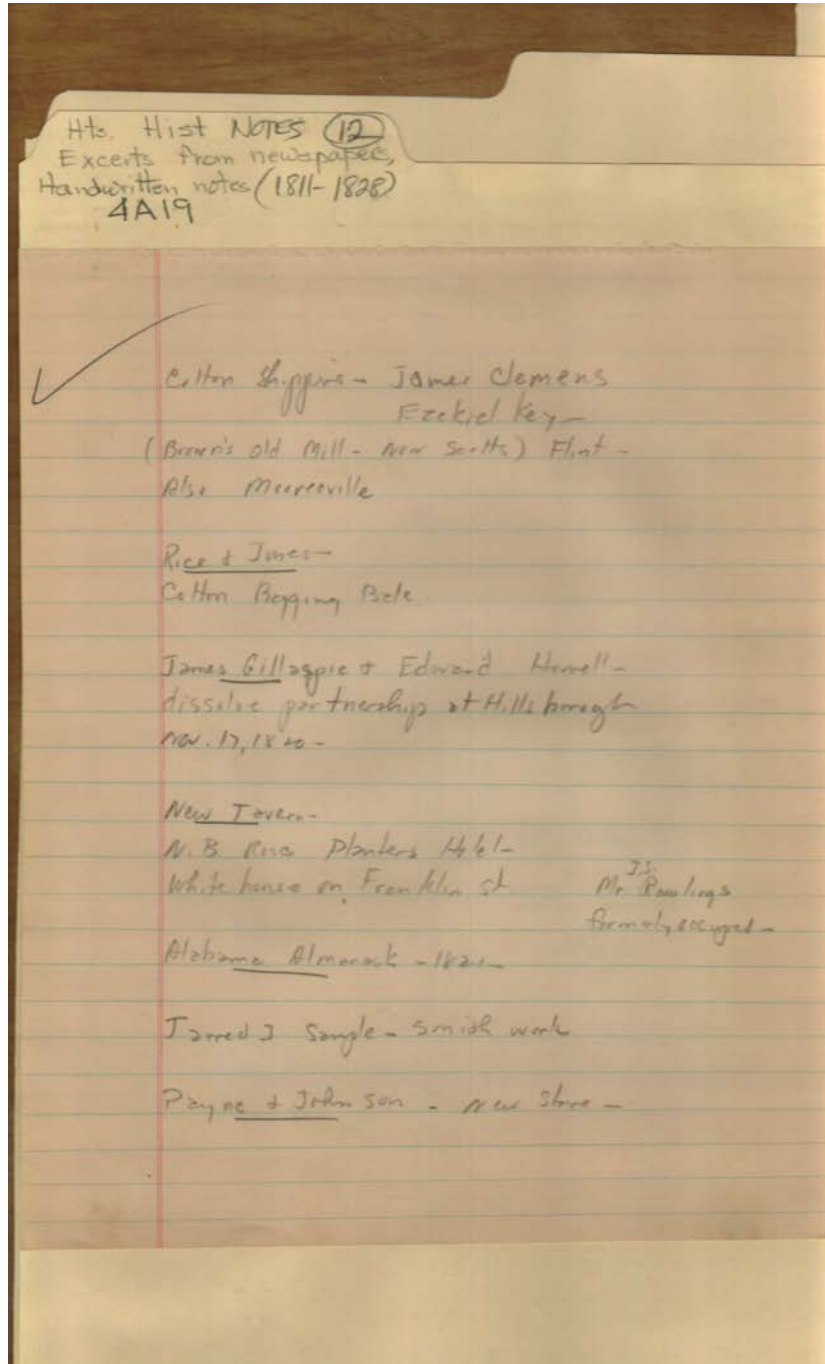 Hts. Hist NOTES (12)
Excerts from newspapers,
Handwritten notes (1811-1828)
4A19
Cotton Shipping - James Clemens
Ezekiel Key -
(Brown's Old Mill - Near Scotts) Flint -
Also Mooresville
Rice & Jones -
Cotton Bagging Bale
James Gillaspie & Edward Harrell -
dissolve partnership at Hillsborough
Nov. 17, 1820 -
New Tavern -
N. B Rose Planters Hotel -
White house on Franklin St
J.S.
Mr Rawlings
formely occupied -
Alabama Almanack - 1821 -
Jarred J Sample - Smith work
Payne & Johnson - New Store -